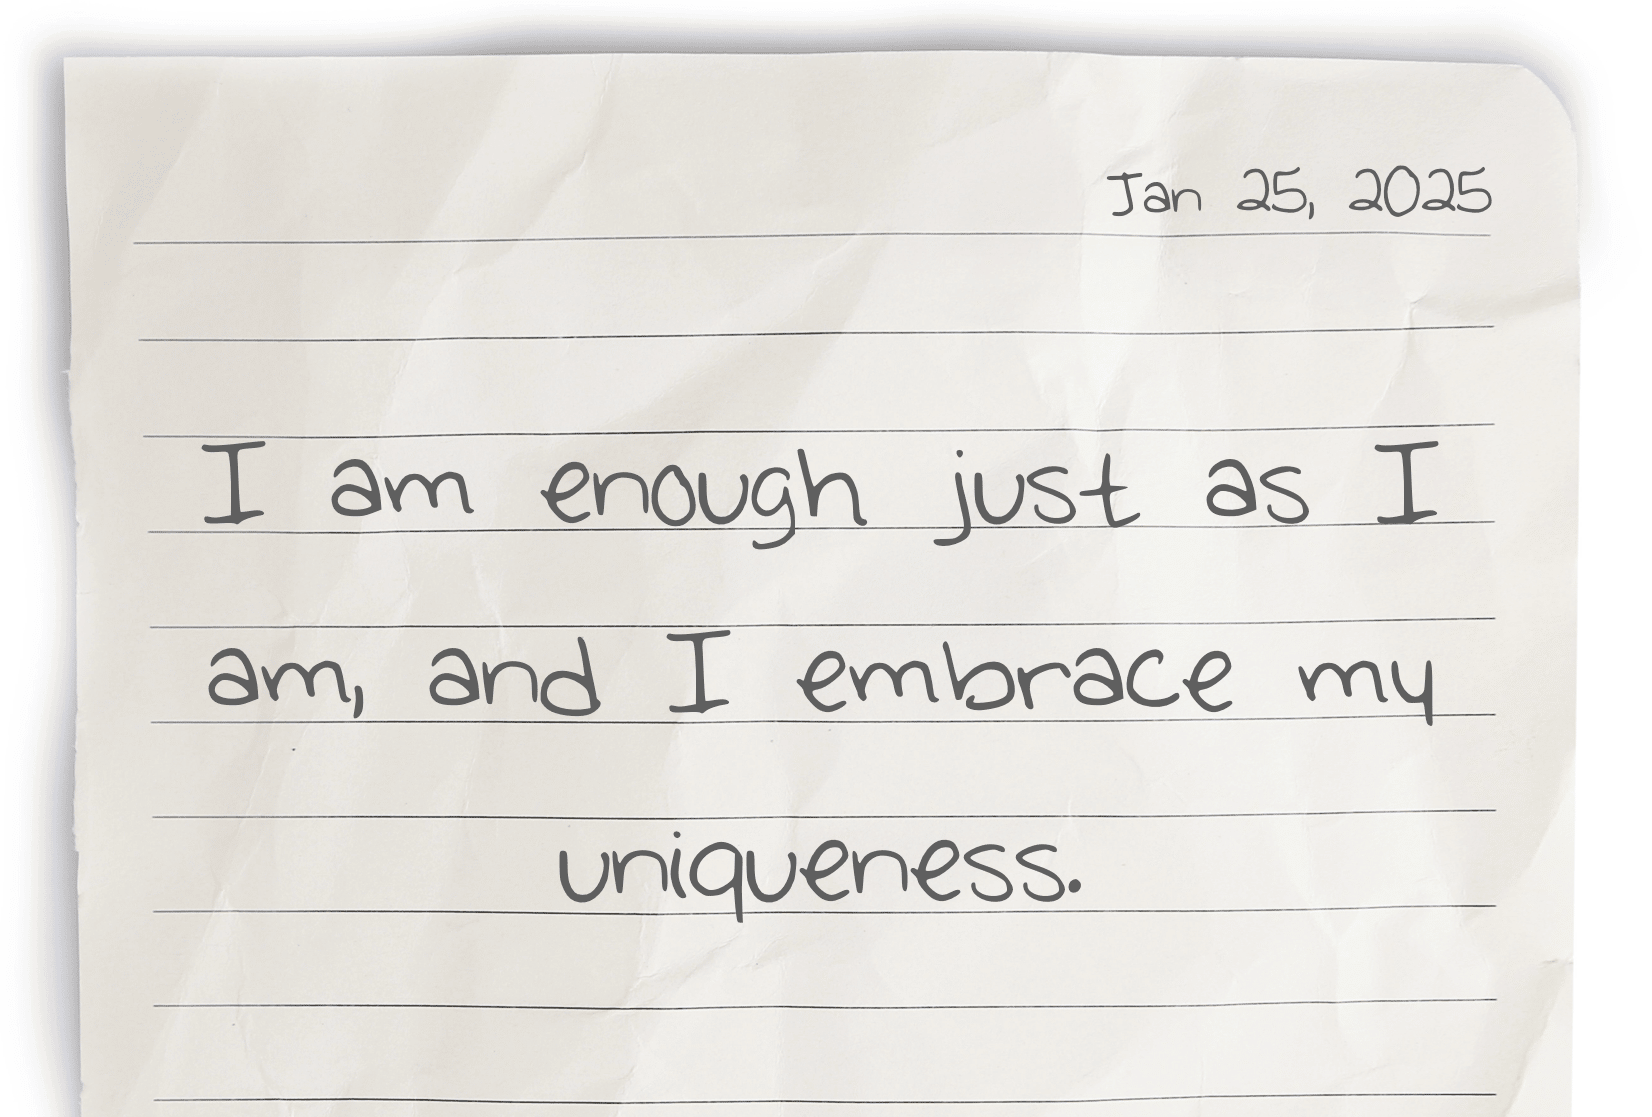 Jan 25, 2025
I am enough just as I
am, and I embrace my
uniqueness.